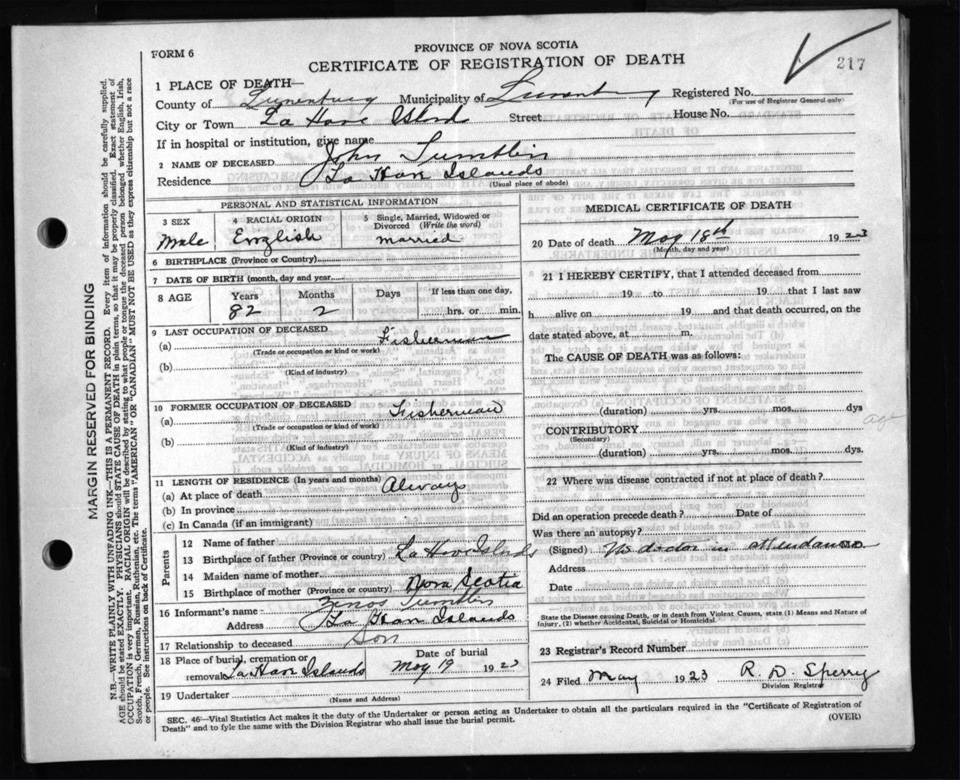 217
FORM 6
PROVINCE OF NOVA SCOTIA
CERTIFICATE OF REGISTRATION OF DEATH
1 PLACE OF DEATH—
County of Lunenburg Municipality of Lunenburg Registered No.
(For use of Registrar General only)
City or Town La Have Island Street House No.
If in hospital or institution, give name
2 NAME OF DECEASED John Tumblin
Residence La Have Islands
(Usual place of abode)
PERSONAL AND STATISTICAL INFORMATION
3 SEX
Male
4 RACIAL ORIGIN
English
5 Single, Married, Widowed or
Divorced (Write the word)
married
6 BIRTHPLACE (Province or Country)
7 DATE OF BIRTH (month, day and year)
8 AGE Years Months Days If less than one day,
82 2 hrs. or min.
9 LAST OCCUPATION OF DECEASED
(a) Fisherman
(Trade or occupation or kind of work)
(b)
(Kind of industry)
10 FORMER OCCUPATION OF DECEASED
(a) Fisherman
(Trade or occupation or kind of work)
(b)
(Kind of industry)
11 LENGTH OF RESIDENCE (In years and months)
(a) At place of death Always
(b) In province
(c) In Canada (if an immigrant)
Parents
12 Name of father
13 Birthplace of father (Province or country) La Have Islands
14 Maiden name of mother
15 Birthplace of mother (Province or country) Nova Scotia
16 Informant's name Zenos Tumblin
Address La Have Islands
17 Relationship to deceased Son
18 Place of burial, cremation or
removal La Have Islands
Date of burial
May 19 1923
19 Undertaker
(Name and Address)
MEDICAL CERTIFICATE OF DEATH
20 Date of death May 18th 1923
(Month, day and year)
21 I HEREBY CERTIFY, that I attended deceased from
19 to 19 that I last saw
h alive on 19 and that death occurred, on the
date stated above, at m.
The CAUSE OF DEATH was as follows:
(duration) yrs. mos. dys
CONTRIBUTORY
(Secondary)
(duration) yrs. mos. dys.
22 Where was disease contracted if not at place of death?
Did an operation precede death? Date of
Was there an autopsy?
(Signed) No doctor in attendance M.D.
Address
Date
State the Disease causing Death, or in death from Violent Causes, state (1) Means and Nature of
Injury, (2) whether Accidental, Suicidal or Homicidal.
23 Registrar's Record Number
24 Filed May 1923 R. D. Sperry
Division Registrar
SEC. 46—Vital Statistics Act makes it the duty of the Undertaker or person acting as Undertaker to obtain all the particulars required in the "Certificate of Registration of
Death" and to fyle the same with the Division Registrar who shall issue the burial permit.
(OVER)
MARGIN RESERVED FOR BINDING
N.B.—WRITE PLAINLY WITH UNFADING INK—THIS IS A PERMANENT RECORD. Every item of information should be carefully supplied.
AGE should be stated EXACTLY. PHYSICIANS should STATE CAUSE OF DEATH in plain terms, so that it may be properly classified. Exact statement of
OCCUPATION is very important. RACIAL ORIGIN will be described by stating to what people or tongue the deceased person belonged whether English, Irish,
Scotch, French, German, Russian, Ruthenian, etc. The terms "AMERICAN" or "CANADIAN" MUST NOT BE USED as they express citizenship but not a race
or people. See instructions on back of Certificate.